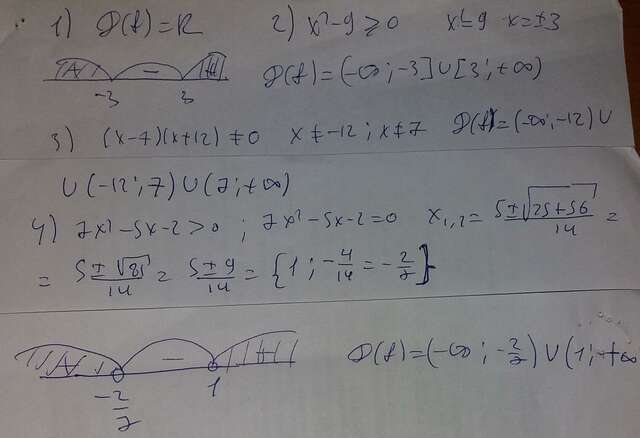 1) D(f)=R 2) x²-9≥0 x²=9 x=±3
-3 3 D(f)=(-∞;-3]∪[3;+∞)
3) (x-7)(x+12)≠0 x≠-12; x≠7 D(f)=(-∞;-12)∪
∪(-12;7)∪(7;+∞)
4) 7x²-5x-2>0; 7x²-5x-2=0 x₁,₂=(5±√(25+56))/14=
=(5±√81)/14=(5±9)/14={1; -4/14=-2/7}
-2/7 1 D(f)=(-∞;-2/7)∪(1;+∞